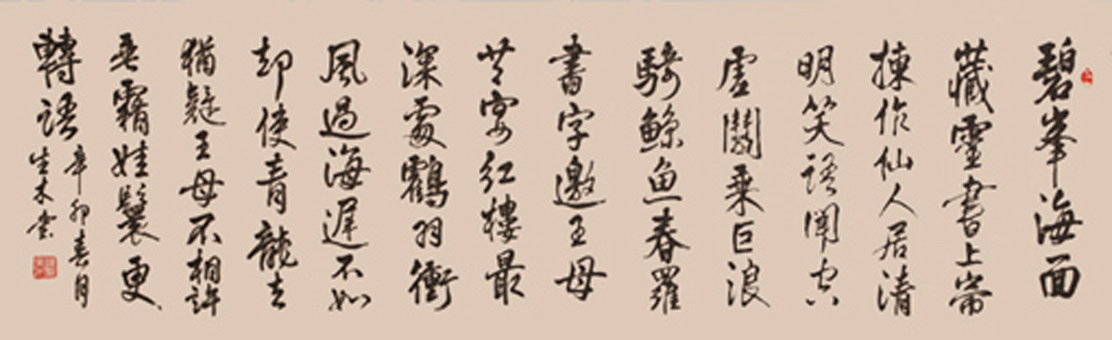 碧峯海面
藏靈書上帝
揀作仙人居清
明笑語聞空
虛鬪乘巨浪
騎鯨魚春羅
書字邀王母
共宴紅樓最
深處鶴羽衝
風過海遲不如
却使青龍去
猶疑王母不相許
垂霧娃鬟更
轉語
辛卯春月
生木